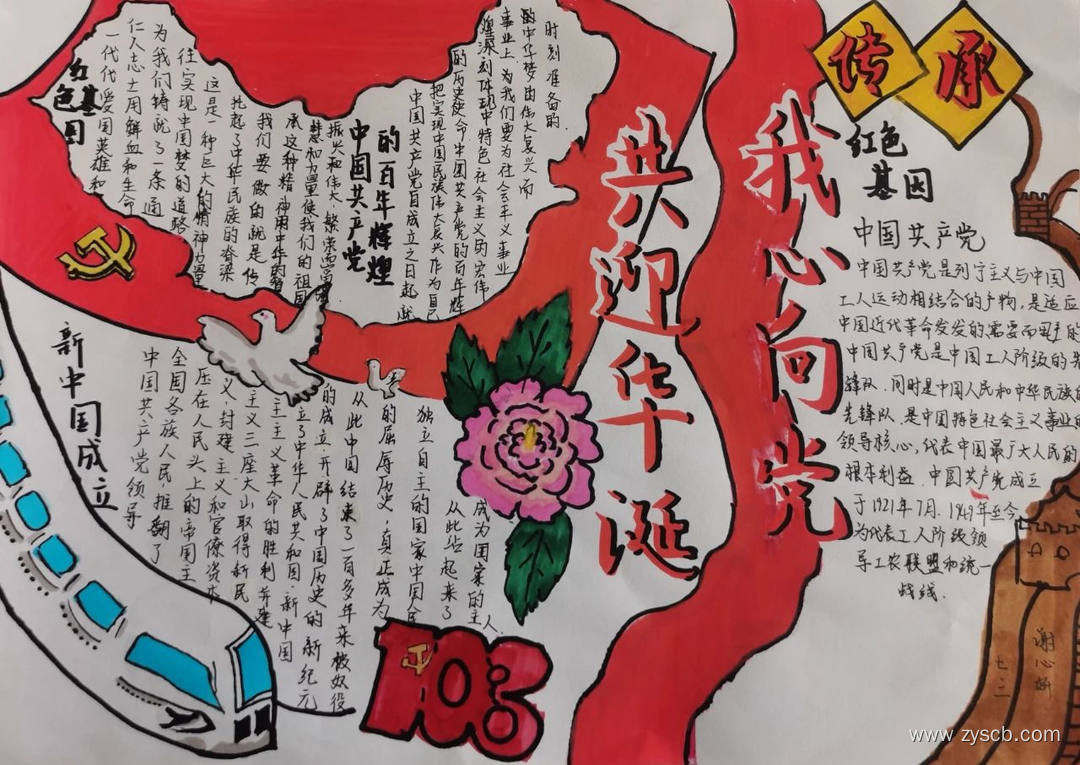 传承
红色
基因
我心向党
共迎华诞
中国共产党
中国共产党是列宁主义与中国
工人运动相结合的产物,是适应
中国近代革命发发的需要而
中国共产党是中国工人阶级的先
锋队,同时是中国人民和中华民族的
先锋队,是中国特色社会主义事业的
领导核心,代表中国最广大人民的
根本利益.中国共产党成立
于1921年7月.1949年至今
为代表工人阶级领
导工农联盟和统一
战线.
谢心妍
七三
时刻准备的.
的中华梦由伟大复兴而
事业上为我们要为社会主义事业
煌深刻体现中特色社会主义的宏伟
的历史使命中国共产党的百年辉
把实现中国民族伟大复兴作为自己
中国共产党自成立之日起就
的百年辉煌
中国共产党
振兴和伟大繁荣富
慧和力量使我们的祖国
承这种精神用
我们要做的就是传
托起了中华民族的脊梁
这是一种巨大的精神力量
往实现中国梦的道路
为我们铸就了一条通
仁人志士用鲜血和生命
一代代爱国英雄和
红色基因
新中国成立
中国共产党领导
全国各族人民,推翻了
压在人民头上的帝国主
义、封建主义和官僚资本
主义三座大山取得新民
主主义革命的胜利并建
立了中华人民共和国新中国
的成立,开辟了中国历史的新纪元
从此中国结束了一百多年来被奴役
的屈辱历史,真正成为
独立自主的国家中国人民
从此站起来了
成为国家的主人
103
www.zyscb.com